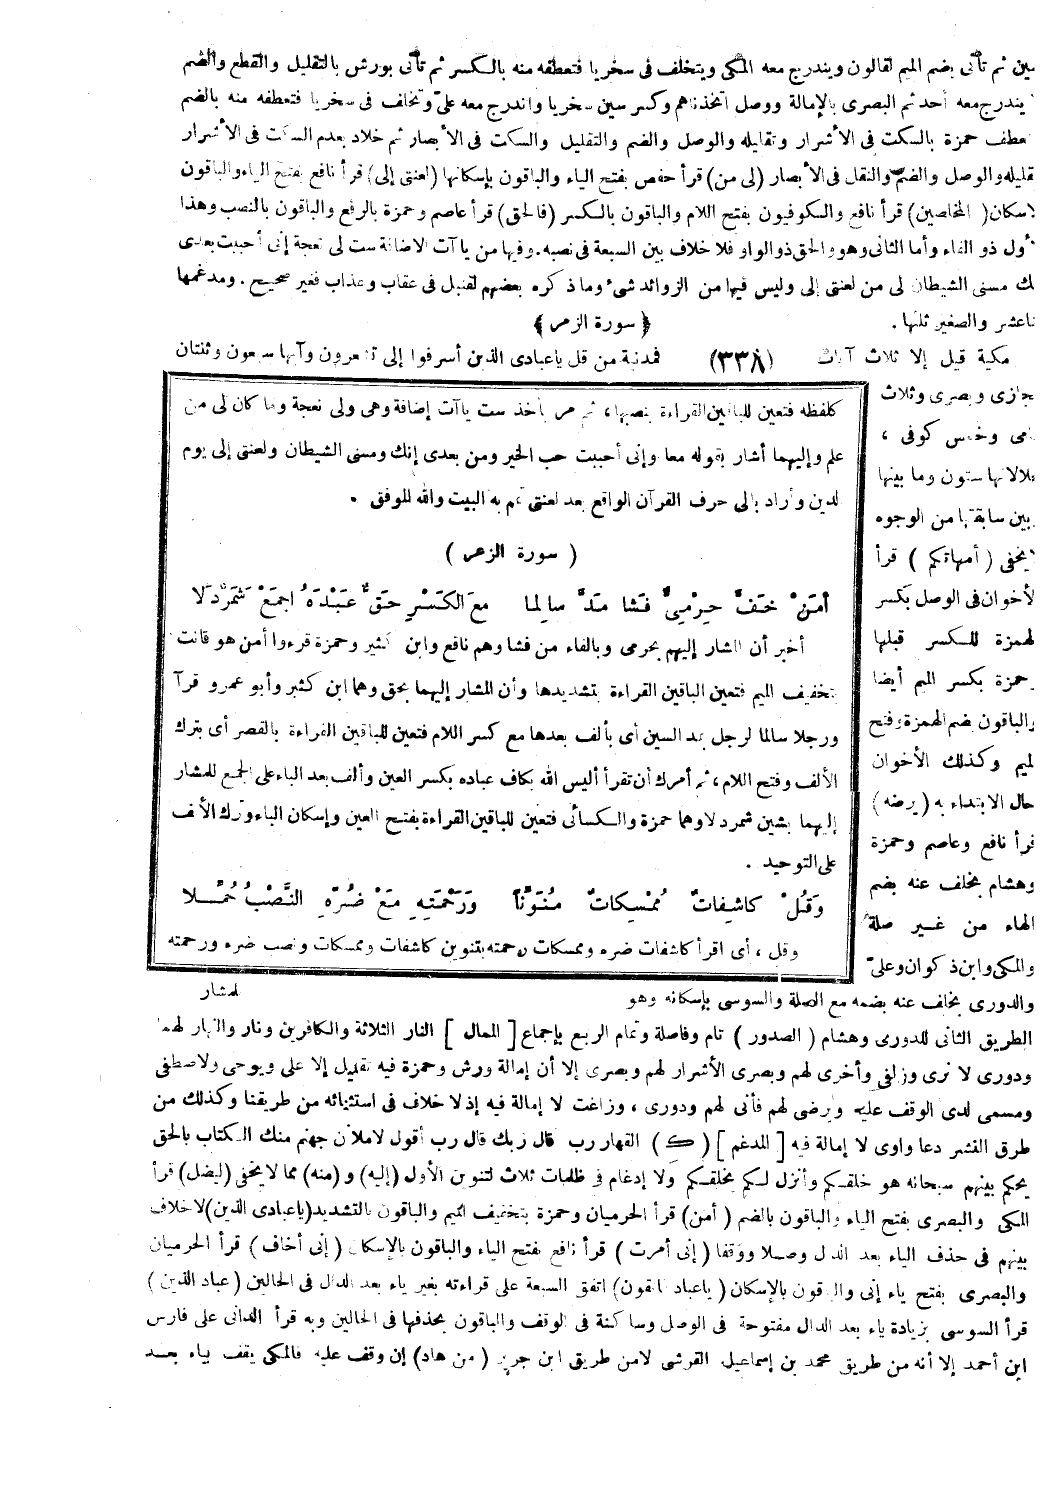 سين ثم تأتى بضم الميم لقالون ويندرج معه المكى ويتخلف فى سخريا فتعطفه منه بالكسر ثم تأتى بورش بالتقليل والقطع والضم
يندرج معه أحد ثم البصرى بالإمالة ووصل اتخذناهم وكسر سين سخريا واندرج معه علىّ وتخلف فى سخريا فتعطفه منه بالضم
عطف حمزة بالسكت فى الأشرار وتقليله والوصل والضم والتقليل والسكت فى الأبصار ثم خلاد بعدم السكت فى الأشرار
قليله والوصل والضم والنقل فى الأبصار (لى من) قرأ حفص بفتح الياء والباقون بإسكانها (لعنتى إلى) قرأ نافع بفتح الياء والباقون
لاسكان (المخلصين) قرأ نافع والكوفيون بفتح اللام والباقون بالكسر (فالحق) قرأ عاصم وحمزة بالرفع والباقون بالنصب وهذا
أول ذو الفاء وأما الثانى وهو والحق ذو الواو فلا خلاف بين السبعة فى نصبه. وفيها من ياآت الاضافة ست لى نعجة إنى أحببت بعدى
لك مسنى الشيطان لى من لعنتى إلى وليس فيها من الزوائد شىء وما ذكره بعضهم لقنبل فى عقاب وعذاب فغير صحيح. ومدغمها
ناعشر والصغير ثلثها.
﴿ سورة الزمر ﴾
مكية قيل إلا ثلاث آيات (٣٣٨) فمدنية من قل ياعبادى الذين أسرفوا إلى تشعرون وآيها سبعون وثنتان
جازى وبصرى وثلاث
امى وخمس كوفى ،
جلالاتها ستون وما بينها
بين سابقتها من الوجوه
لايخفى (أمهاتكم) قرأ
لأخوان فى الوصل بكسر
لهمزة للكسر قبلها
وحمزة بكسر الميم أيضا
والباقون بضم الهمزة وفتح
لميم وكذلك الأخوان
حال الابتداء به (يرضه)
قرأ نافع وعاصم وحمزة
وهشام بخلف عنه بضم
الهاء من غير صلة
والمكى وابن ذكوان وعلىّ
كلفظه فتعين للباقين القراءة بنصبها، ثم مر بأخذ ست ياآت إضافة وهى ولى نعجة وما كان لى من
علم وإليهما أشار بقوله معا وإنى أحببت حب الخير ومن بعدى إنك ومسنى الشيطان ولعنتى إلى يوم
لدين وأراد بإلى حرف القرآن الواقع بعد لعنتى تمم به البيت والله الموفق .
( سورة الزمر )
أَمَنْ خَفَّ حِرْمِىٌّ فَشَا مَدَّ سالِما مَعَ الكَسْرِ حَقٌّ عَبْدَهُ اجمَعْ شَمَرْدَلا
أخبر أن المشار إليهم بحرمى وبالفاء من فشا وهم نافع وابن كثير وحمزة قرءوا أمن هو قانت
بتخفيف الميم فتعين الباقين القراءة بتشديدها وأن المشار إليهما بحق وهما ابن كثير وأبو عمرو قرآ
ورجلا سالما لرجل بمد السين أى بألف بعدها مع كسر اللام فتعين للباقين القراءة بالقصر أى بترك
الألف وفتح اللام، ثم أمرك أن تقرأ أليس الله بكاف عباده بكسر العين وألف بعد الباء على الجمع للمشار
إليهما بشين شمردلا وهما حمزة والكسائى فتعين للباقين القراءة بفتح العين وإسكان الباء وترك الألف
على التوحيد .
وَقُلْ كاشِفاتٌ مُمْسِكاتٌ مُنَوِّنًا وَرَحْمَتِهِ مَعْ ضُرِّهِ النَّصْبُ حُمِّلا
وقل ، أى اقرأ كاشفات ضره وممسكات رحمته بتنوين كاشفات وممسكات ونصب ضره ورحمته
للمشار
والدورى بخلف عنه بضمه مع الصلة والسوسى بإسكانه وهو
الطريق الثانى للدورى وهشام (الصدور) تام وفاصلة وتمام الربع بإجماع [الممال] النار الثلاثة والكافرين ونار والنهار لهما
ودورى لا ترى وزلفى وأخرى لهم وبصرى الأشرار لهم وبصرى إلا أن إمالة ورش وحمزة فيه تقليل إلا على ويوحى ولاصطفى
ومسمى لدى الوقف عليه ويرضى لهم فأنى لهم ودورى ، وزاغت لا إمالة فيه إذ لا خلاف فى استثنائه من طريقنا وكذلك من
طرق النشر دعا واوى لا إمالة فيه [المدغم] (ك) القهار رب قال ربك قال رب أقول لاملأن جهنم منك الكتاب بالحق
يحكم بينهم سبحانه هو خلقكم وأنزل لكم يخلقكم ولا إدغام فى ظلمات ثلاث لتنوين الأول (إليه) و (منه) مما لا يخفى (ليضل) قرأ
المكى والبصرى بفتح الياء والباقون بالضم (أمن) قرأ الحرميان وحمزة بتخفيف الميم والباقون بالتشديد (ياعبادى الذين) لا خلاف
بينهم فى حذف الياء بعد الدال وصلا ووقفا (إنى أمرت) قرأ نافع بفتح الياء والباقون بالإسكان (إنى أخاف) قرأ الحرميان
والبصرى بفتح ياء إنى والباقون بالإسكان (ياعباد فاتقون) اتفق السبعة على قراءته بغير ياء بعد الدال فى الحالين (عباد الذين)
قرأ السوسى بزيادة ياء بعد الدال مفتوحة فى الوصل وساكنة فى الوقف والباقون بحذفها فى الحالين وبه قرأ الدانى على فارس
ابن أحمد إلا أنه من طريق محمد بن إسماعيل القرشى لا من طريق ابن جرير (من هاد) إن وقف عليه فالمكى يقف بياء بعد